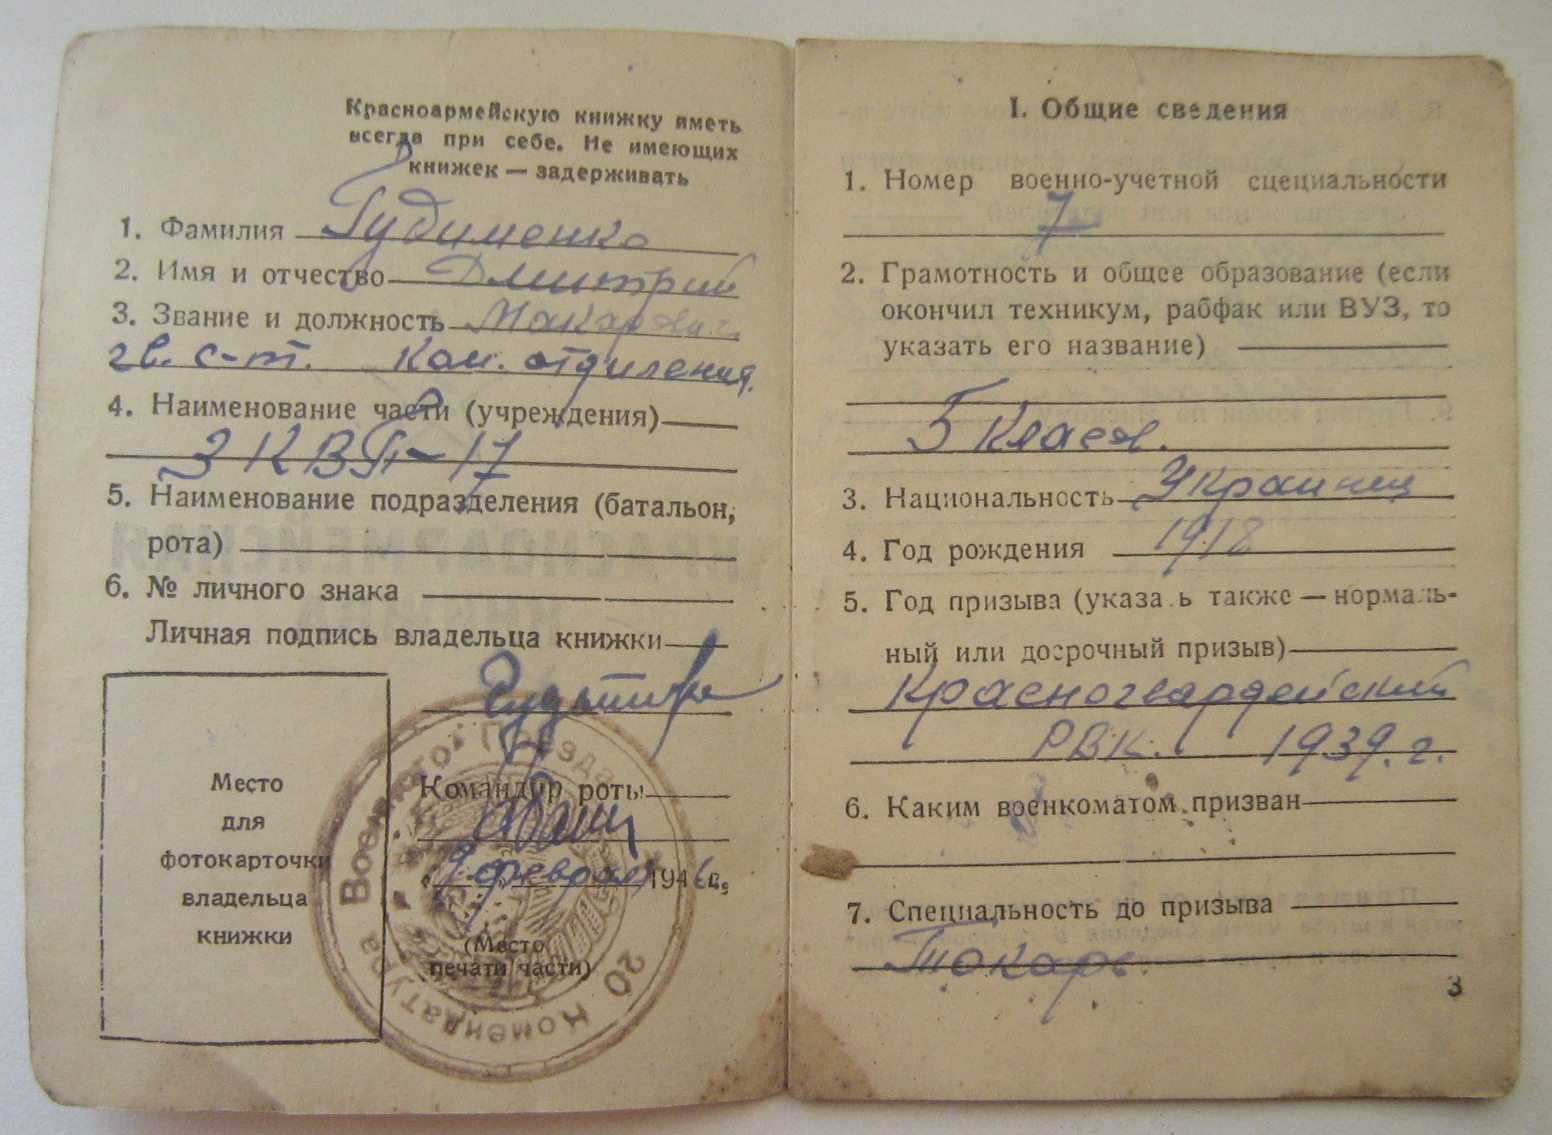 Красноармейскую книжку иметь
всегда при себе. Не имеющих
книжек — задерживать
1. Фамилия Гудименко
2. Имя и отчество Дмитрий
3. Звание и должность Макарович
гв. с-т. Ком. отделения.
4. Наименование части (учреждения)
5. Наименование подразделения (батальон,
рота)
6. № личного знака
Личная подпись владельца книжки
Командир роты
февраля 1946 г.
(Место
печати части)
Место
для
фотокарточки
владельца
книжки
20 Комендатура Военного Поезда
I. Общие сведения
1. Номер военно-учетной специальности
7
2. Грамотность и общее образование (если
окончил техникум, рабфак или ВУЗ, то
указать его название)
5 Класов.
3. Национальность Украинец
4. Год рождения 1918
5. Год призыва (указа.ь также — нормаль-
ный или досрочный призыв)
Красногвардейский
РВК. 1939. г.
6. Каким военкоматом призван
7. Специальность до призыва
Токарь.
3